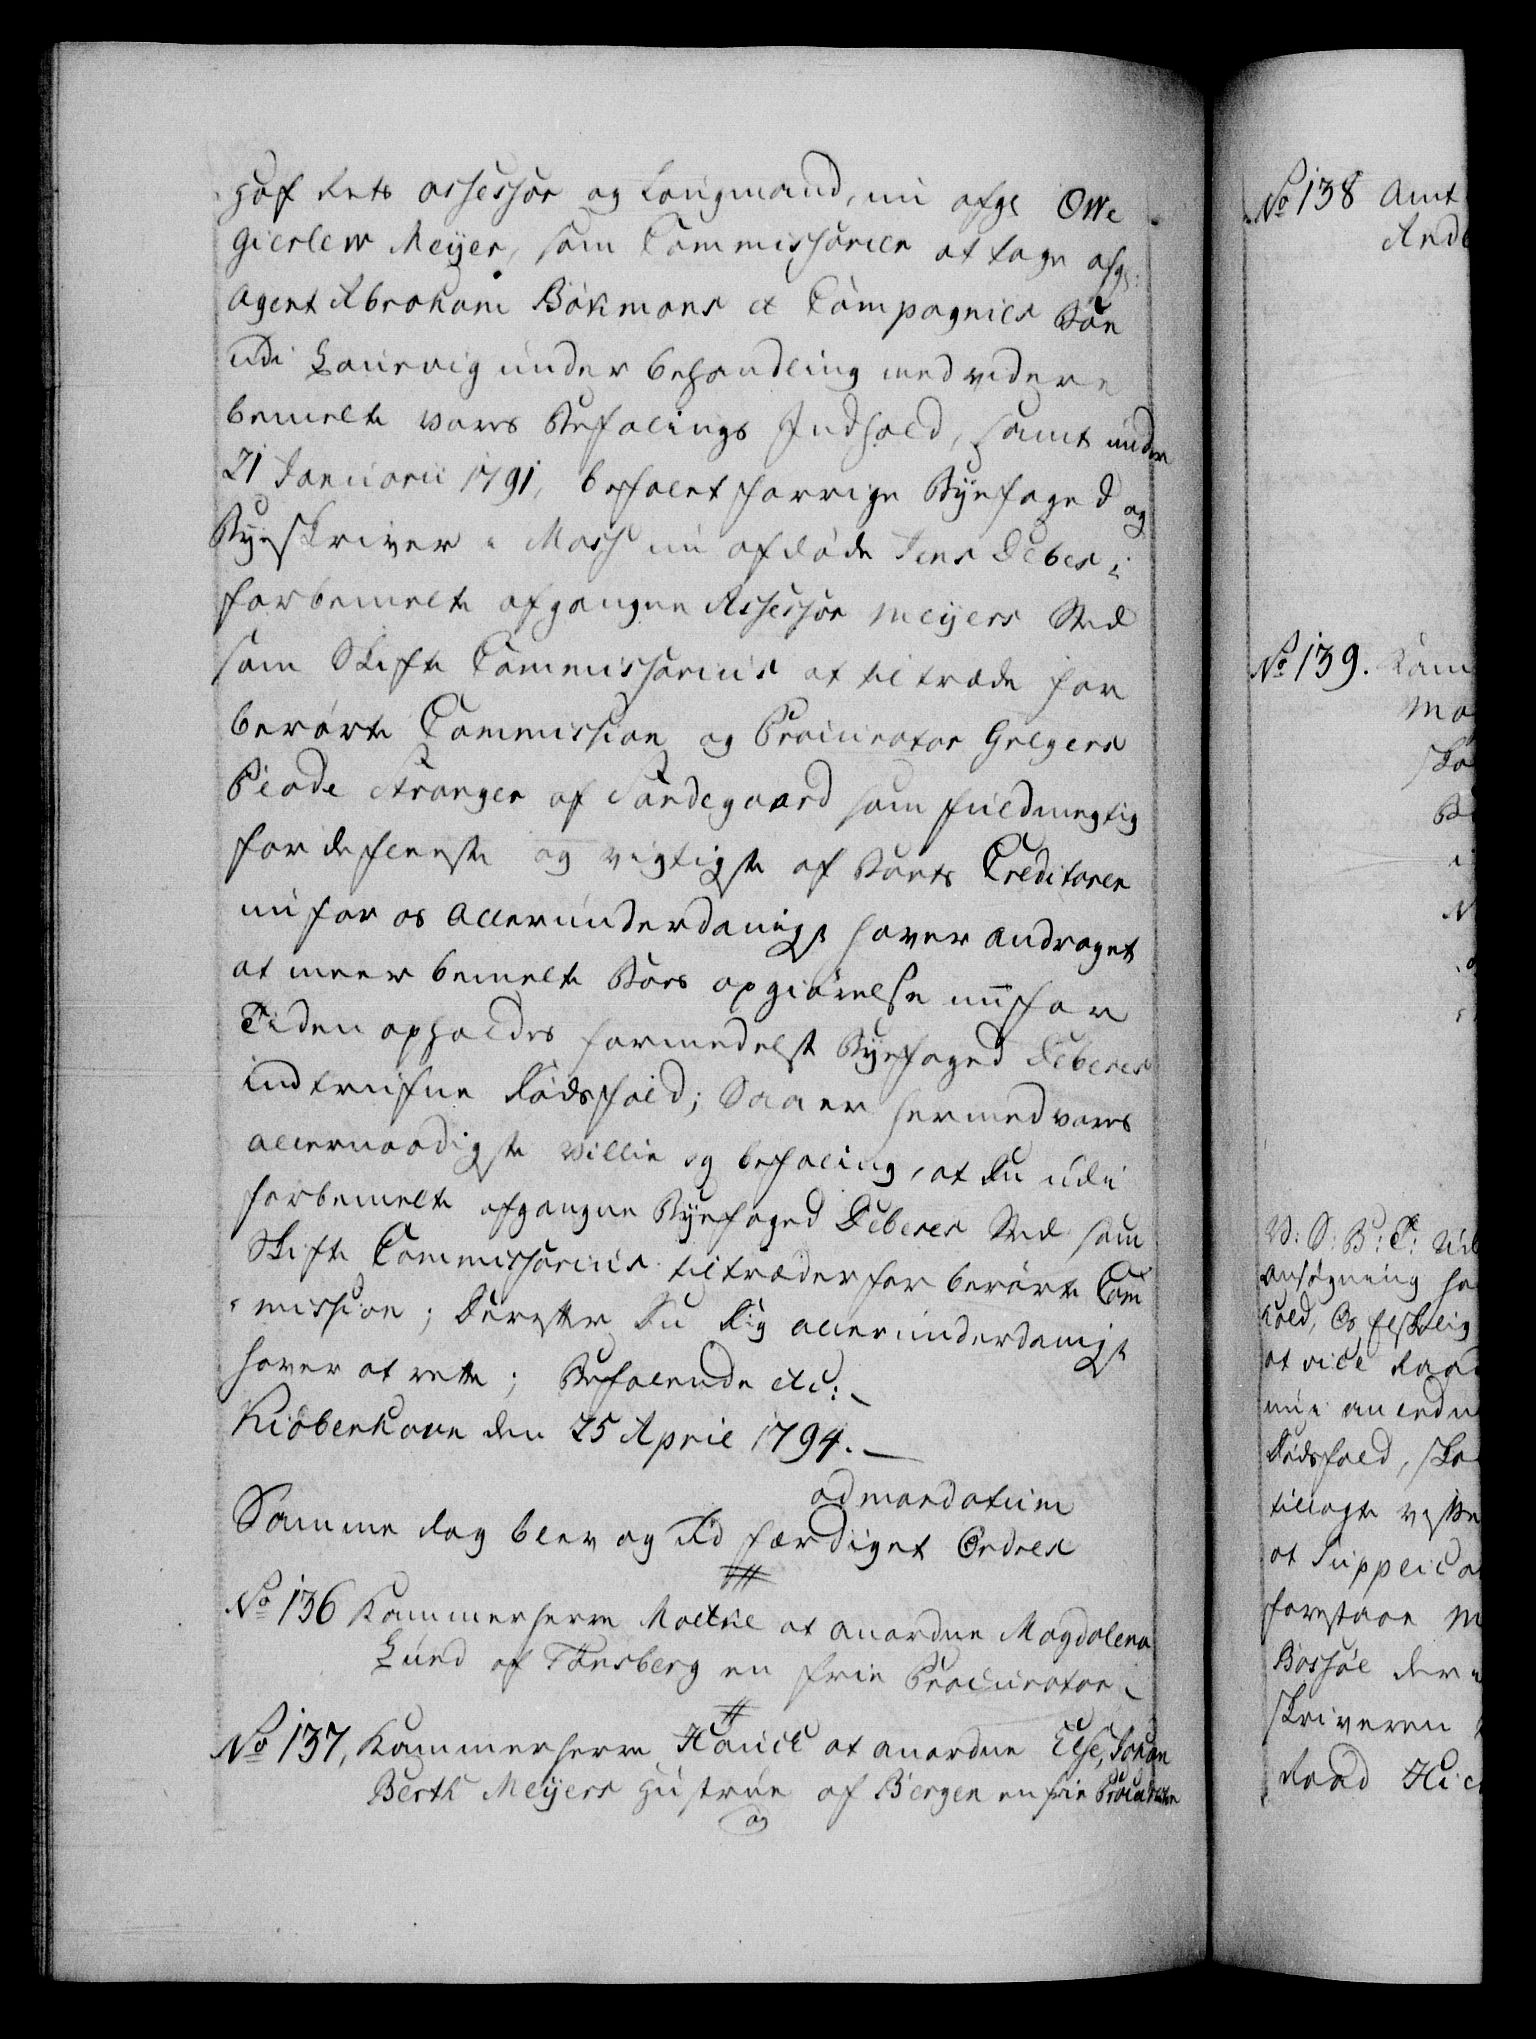 Hof Rets assessor og Laugmand, nu afg: Owe
Gierlew Meyer, som Commissarier at tage afg:
Agent Abraham Bökmans et Compagnies Boe
udi Laurvig under behandling med videre
bemelte vores Befalings Indhold, samt under
21 Januarii 1791, befalet forrige Byefoged og
Byeskriver i Moss nu afdöde Jens Debes i
forbemelte afgangne Assessor Meyers Sted
som Skifte Commissarius at tiltræde for
berörte Commission og Procurator Gregers
Stranger af Sandegaard som fuldmegtig
for de fleeste og vigtigste af Boets Creditorer
nu for os allerunderdanigst haver andraget
at meer bemelte Boes opgiörelse nu for
Tiden opholdes formedelst Byefoged Debeses
indtrufne Dödsfald; Saa er hermed vores
allernaadigste Villie og befaling, at du udi
forbemelte afgangne Byefoged Debeses Sted som
Skifte Commissarius tiltræder forberörte Com
mission; Derefter Du dig allerunderdanigst
haver at rette; Befalende etc:
Kiöbenhavn den 25 April 1794.
ad mandatum
Samme dag blev og Ud færdiget Ordres
No 136 Kammerherre Moltke at anordne Magdalena
Lund af Tönsberg en frie Procurator
No 137, Kammerherre Hauch at anordne Else, Johan
Berth Meyers Hustrue af Bergen en frie Procurator
og
No 138 Amt
No 139. Kam
Ma
V: S: B: T: Ud
ansögning ha
at vice Raad
Dödsfald, ska
tillagte
at Supplica
forestaae M
Bossöe der
skriveren
Raad